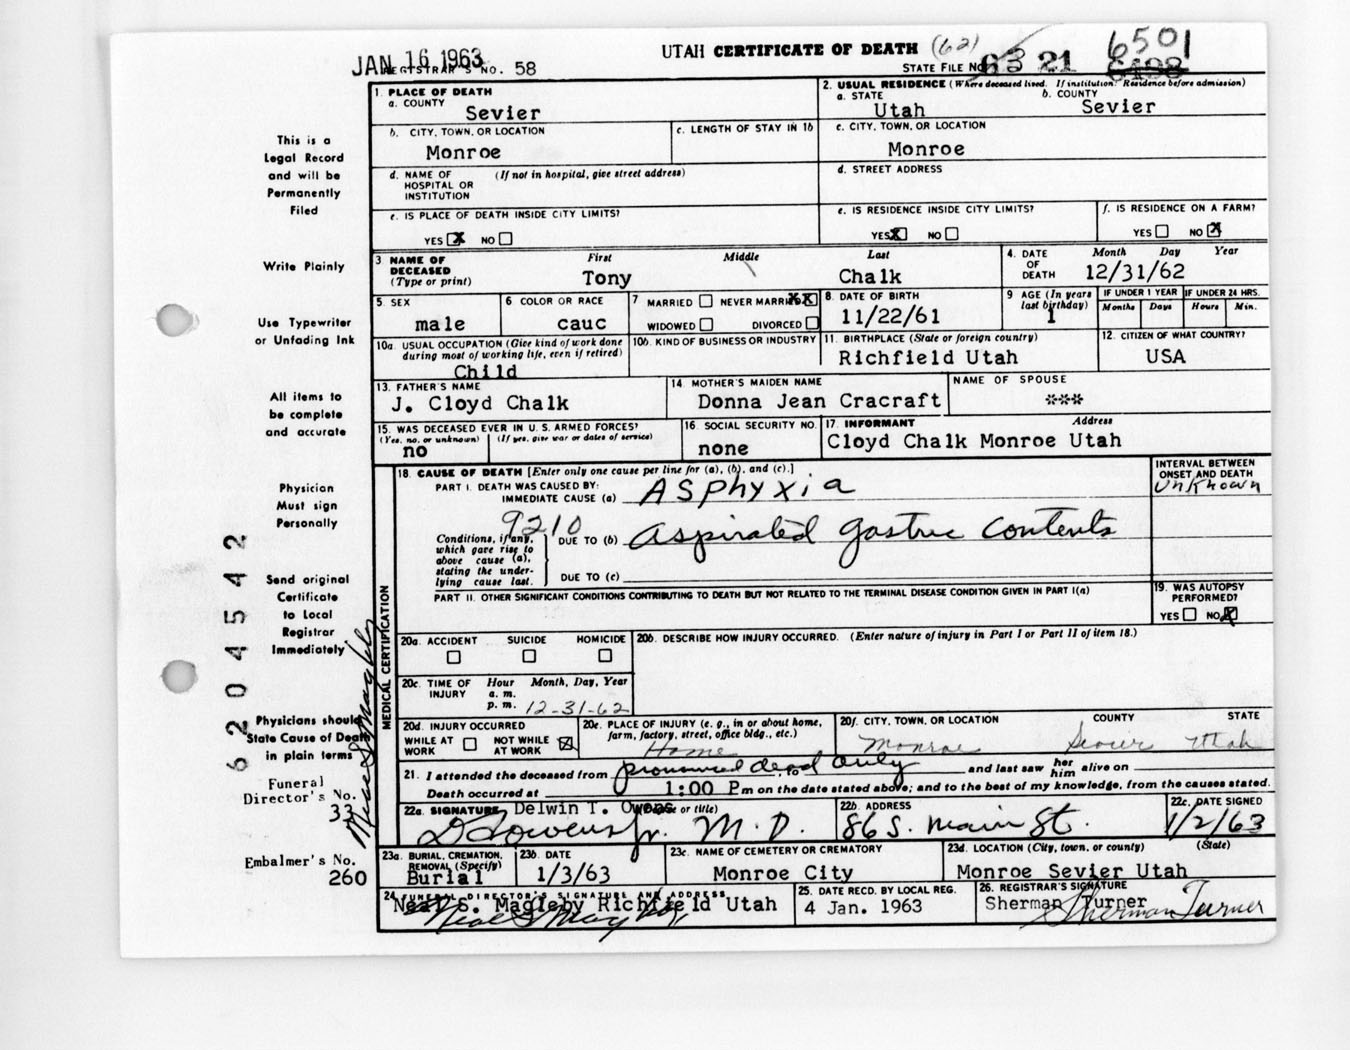 JAN 16 1963
UTAH CERTIFICATE OF DEATH (62)
6501
REGISTRAR'S NO. 58
STATE FILE NO. 63 21 6498
1. PLACE OF DEATH
a. COUNTY
Sevier
2. USUAL RESIDENCE (Where deceased lived. If institution: Residence before admission)
a. STATE Utah
b. COUNTY Sevier
b. CITY, TOWN, OR LOCATION
Monroe
c. LENGTH OF STAY IN 1b
c. CITY, TOWN, OR LOCATION
Monroe
d. NAME OF HOSPITAL OR INSTITUTION (If not in hospital, give street address)
d. STREET ADDRESS
e. IS PLACE OF DEATH INSIDE CITY LIMITS?
YES X NO
e. IS RESIDENCE INSIDE CITY LIMITS?
YES X NO
f. IS RESIDENCE ON A FARM?
YES NO X
3 NAME OF DECEASED (Type or print)
First Middle Last
Tony Chalk
4. DATE OF DEATH Month Day Year
12/31/62
5. SEX
male
6 COLOR OR RACE
cauc
7 MARRIED NEVER MARRIED XX
WIDOWED DIVORCED
8. DATE OF BIRTH
11/22/61
9 AGE (In years last birthday)
1
IF UNDER 1 YEAR Months Days
IF UNDER 24 HRS. Hours Min.
10a. USUAL OCCUPATION (Give kind of work done during most of working life, even if retired)
Child
10b. KIND OF BUSINESS OR INDUSTRY
11. BIRTHPLACE (State or foreign country)
Richfield Utah
12. CITIZEN OF WHAT COUNTRY?
USA
13. FATHER'S NAME
J. Cloyd Chalk
14. MOTHER'S MAIDEN NAME
Donna Jean Cracraft
NAME OF SPOUSE
***
15. WAS DECEASED EVER IN U. S. ARMED FORCES?
(Yes, no, or unknown) (If yes, give war or dates of service)
no
16. SOCIAL SECURITY NO.
none
17. INFORMANT Address
Cloyd Chalk Monroe Utah
MEDICAL CERTIFICATION
18. CAUSE OF DEATH [Enter only one cause per line for (a), (b), and (c).]
INTERVAL BETWEEN ONSET AND DEATH
PART I. DEATH WAS CAUSED BY:
IMMEDIATE CAUSE (a) Asphyxia
Unknown
9210
Conditions, if any, which gave rise to above cause (a), stating the underlying cause last.
DUE TO (b) Aspirated gastric contents
DUE TO (c)
PART II. OTHER SIGNIFICANT CONDITIONS CONTRIBUTING TO DEATH BUT NOT RELATED TO THE TERMINAL DISEASE CONDITION GIVEN IN PART I(a)
19. WAS AUTOPSY PERFORMED?
YES NO X
20a. ACCIDENT SUICIDE HOMICIDE
20b. DESCRIBE HOW INJURY OCCURRED. (Enter nature of injury in Part I or Part II of item 18.)
20c. TIME OF INJURY Hour Month, Day, Year
a. m.
p. m. 12-31-62
20d. INJURY OCCURRED
WHILE AT WORK NOT WHILE AT WORK X
20e. PLACE OF INJURY (e. g., in or about home, farm, factory, street, office bldg., etc.)
Home
20f. CITY, TOWN, OR LOCATION COUNTY STATE
Monroe Sevier Utah
21. I attended the deceased from pronounced dead only, to and last saw her him alive on
Death occurred at 1:00 P m on the date stated above; and to the best of my knowledge, from the causes stated.
22a. SIGNATURE Delwin T. Owens (Degree or title)
DTOwens Jr. M.D.
22b. ADDRESS
86 S. Main St.
22c. DATE SIGNED
1/2/63
23a. BURIAL, CREMATION, REMOVAL (Specify)
Burial
23b. DATE
1/3/63
23c. NAME OF CEMETERY OR CREMATORY
Monroe City
23d. LOCATION (City, town, or county) (State)
Monroe Sevier Utah
24 FUNERAL DIRECTOR'S SIGNATURE AND ADDRESS
Neal S. Magleby Richfield Utah
Neal S Magleby
25. DATE RECD. BY LOCAL REG.
4 Jan. 1963
26. REGISTRAR'S SIGNATURE
Sherman Turner
Sherman Turner
This is a
Legal Record
and will be
Permanently
Filed
Write Plainly
Use Typewriter
or Unfading Ink
All items to
be complete
and accurate
Physician
Must sign
Personally
Send original
Certificate
to Local
Registrar
Immediately
Physicians should
State Cause of Death
in plain terms
Funeral
Director's No.
33
Embalmer's No.
260
Neal S Magleby
6204542